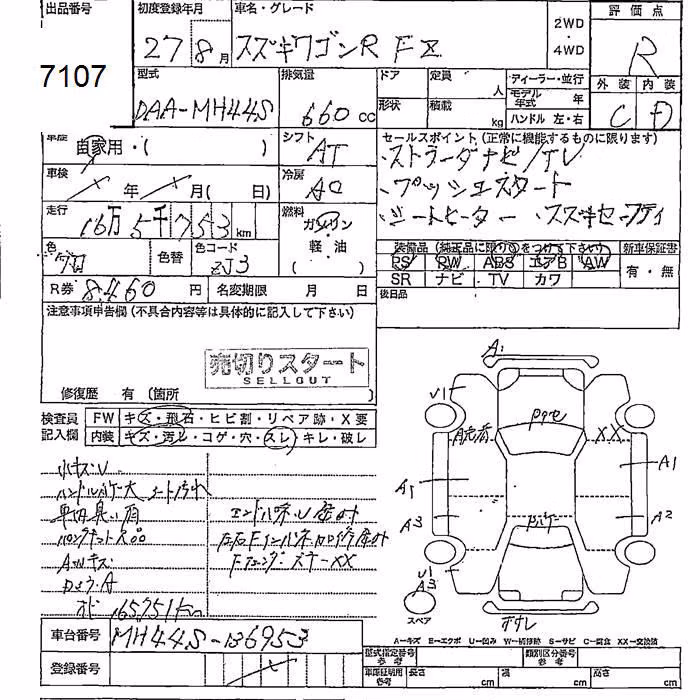 出品番号
7107
初度登録年月
27 8月
車名・グレード
スズキワゴンR FZ
2WD
・
4WD
評価点
R
外装 内装
C D
型式
DAA-MH44S
排気量
660 cc
ドア
定員
人
形状
積載
kg
ディーラー・並行
モデル年式 年
ハンドル 左・右
車歴
自家用・( )
シフト
AT
車検
年 月( 日)
冷房
AC
走行
16万5千753 km
燃料
ガソリン
・
軽・油
( )
色
色替
色コード
ZJ3
R券 8460 円
名変期限 月 日
セールスポイント (正常に機能するものに限ります)
・ストラーダナビ/TV
・プッシュスタート
・シートヒーター ・スズキセーフティ
装備品(純正品に限り○をつけて下さい)
PS PW ABS エアB AW
SR ナビ TV カワ
新車保証書
有・無
後日品
注意事項申告欄(不具合内容等は具体的に記入して下さい)
売切りスタート
SELLOUT
修復歴 有 (箇所 )
検査員
記入欄
FW キズ・飛石・ヒビ割・リペア跡・X要
内装 キズ・汚レ・コゲ・穴・スレ・キレ・破レ
小キズ・U
シート汚れ
車内臭い有
AWキズ
165,751km
XX
A1
U1
XX
A1
A1
A3
A2
U1
A3
スペア
A-キズ E-エクボ U-凹み W-補修跡 S-サビ C-腐食 XX-交換済
車台番号 MH44S-136953
登録番号
型式指定番号
参考
類別区分番号
参考
車庫証明用
参考
長さ cm
幅 cm
高さ cm